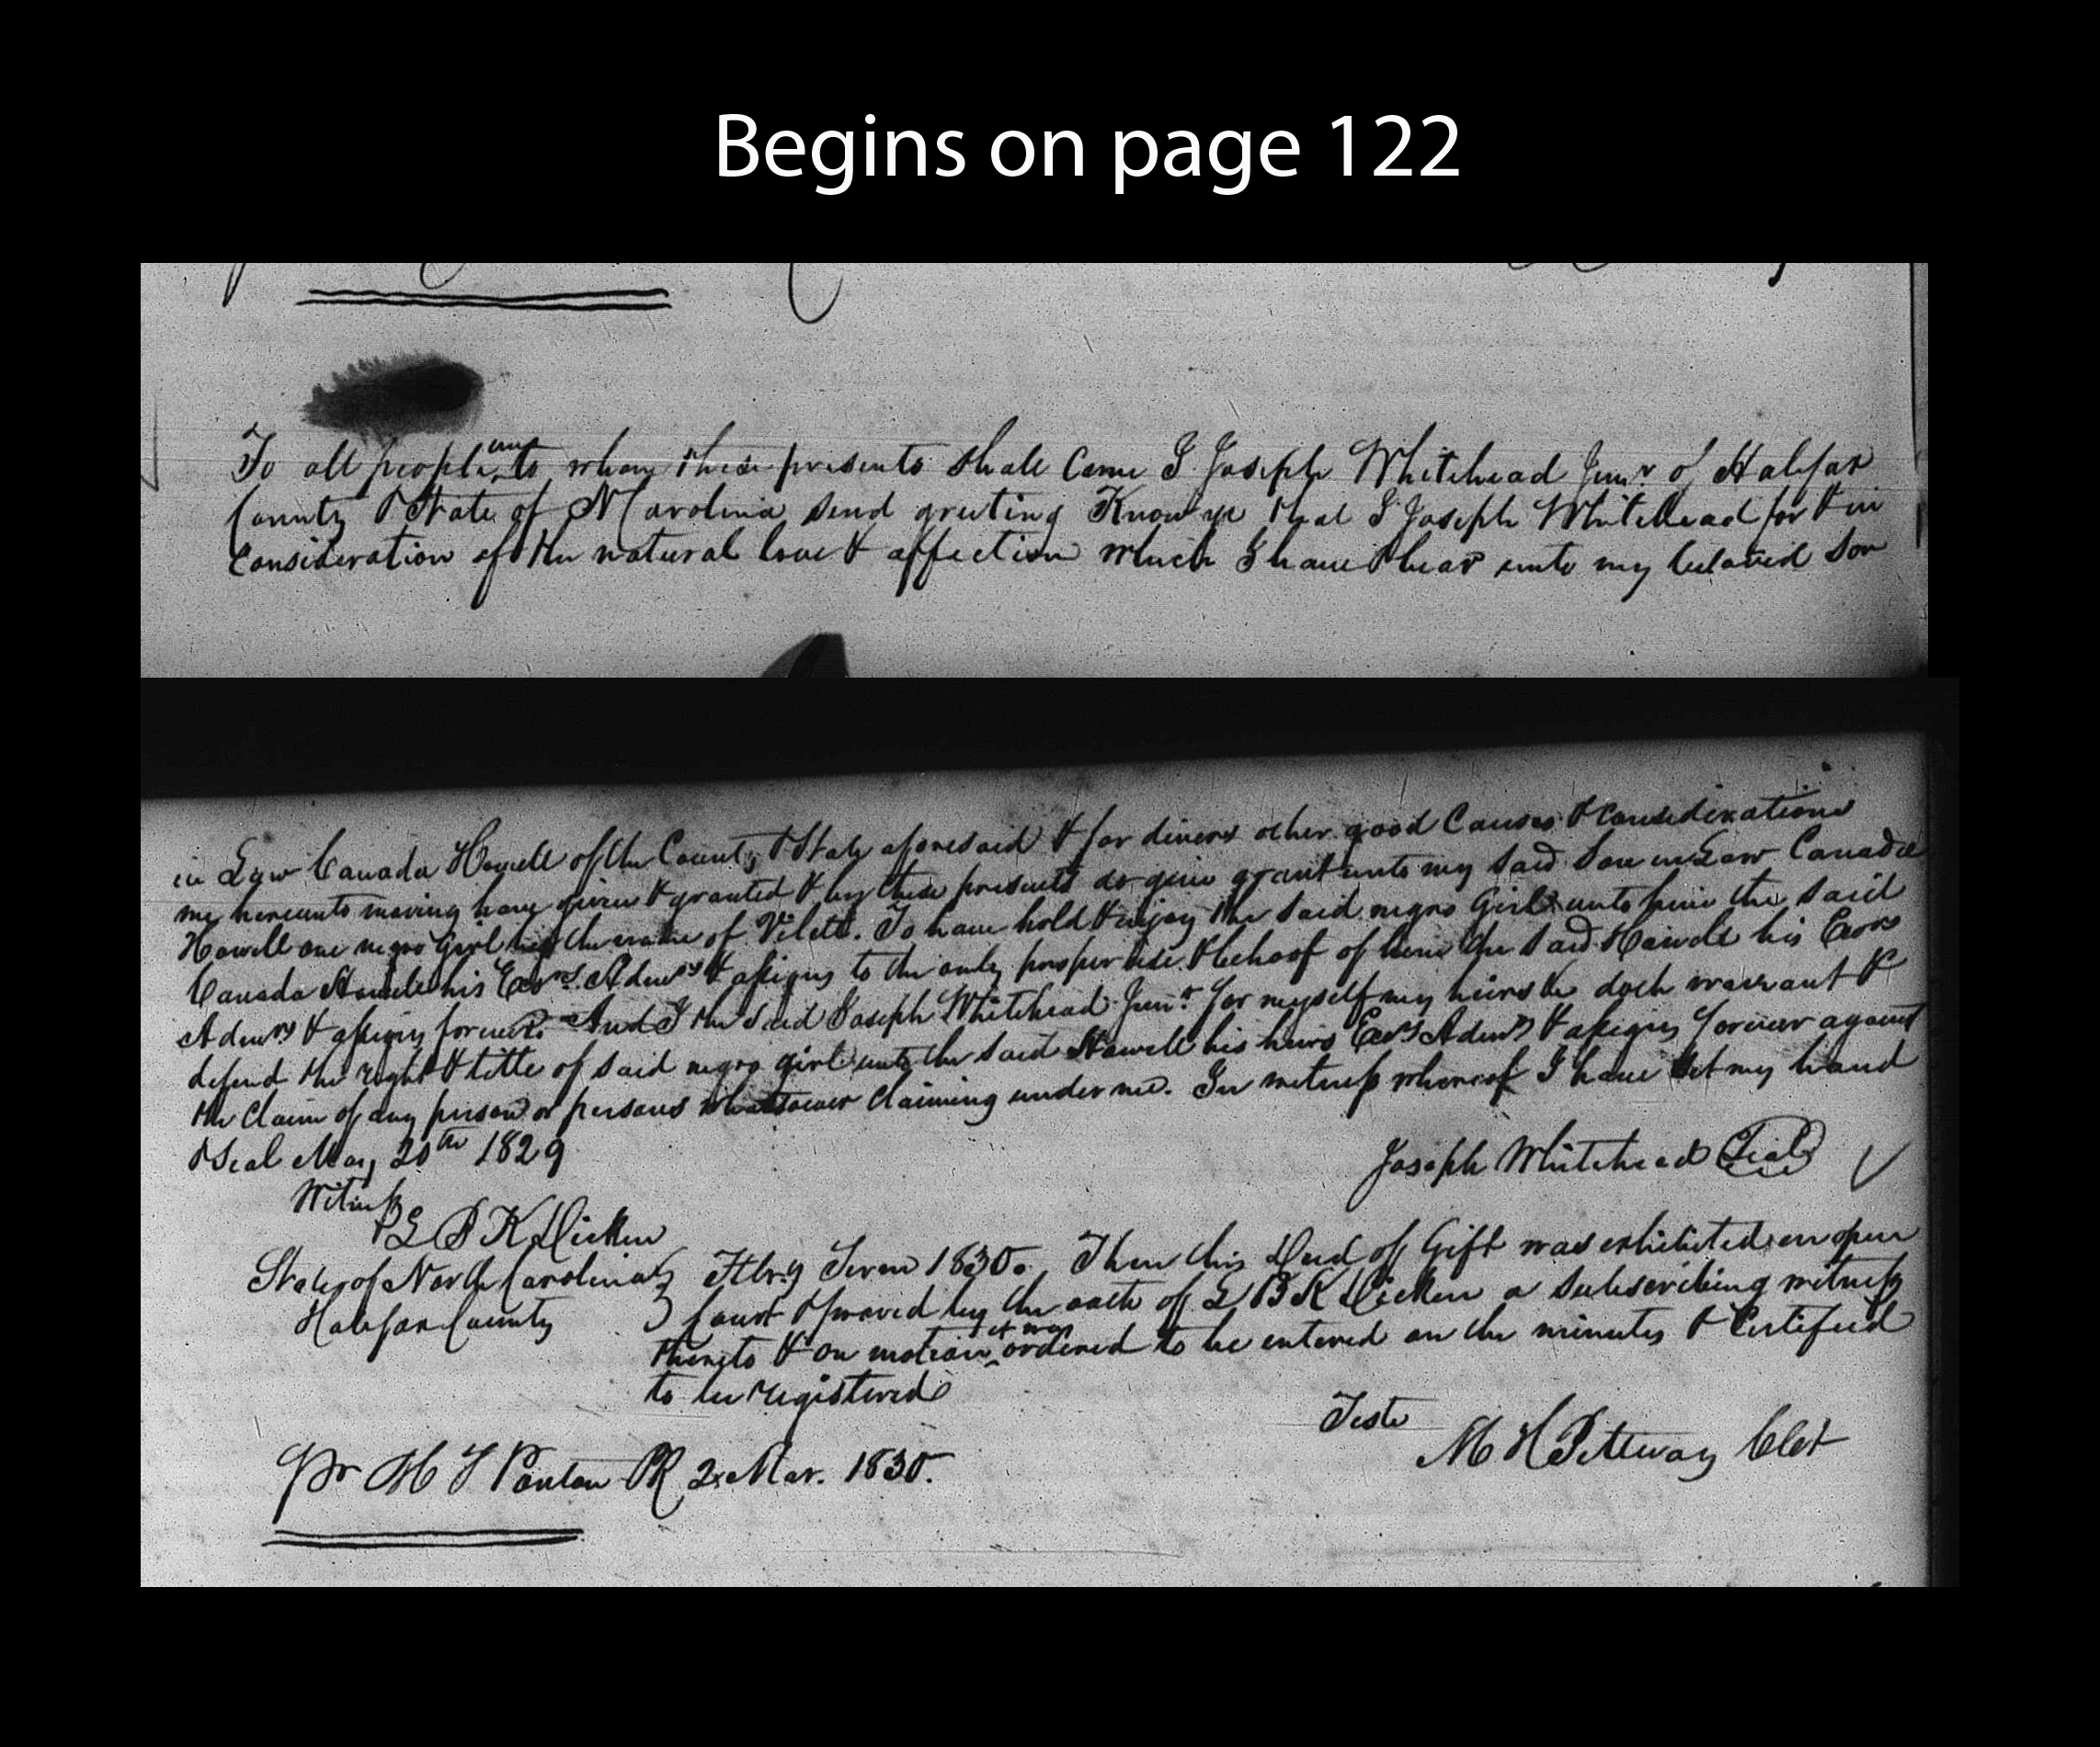 Begins on page 122
To all people unt to whom these presents shall come I Joseph Whitehead Junr of Halifax
County & State of N Carolina send greeting Know ye that I Joseph Whitehead for & in
Consideration of the natural love & affection which I have & bear unto my beloved Son
in Law Canada Howell of the County & State aforesaid & for divers other good Causes & Considerations
me hereunto moving have given & granted & by these presents do give grant unto my said Son in Law Canada
Howell one negro Girl by the name of Vilett. To have hold & enjoy the said negro Girl unto him the said
Canada Howell his Exors. Admrs & assigns to the only proper use & behoof of him the said Howell his Exors
Admrs & assigns forever. And I the said Joseph Whitehead Junr for myself my heirs &c doth warrant &
defend the right & title of said negro girl unto the said Howell his heirs Exors Admrs & assigns forever against
the Claim of any person or persons whatsoever Claiming under me. In witness whereof I have set my hand
& Seal May 20th 1829
Joseph Whitehead Seal
Witness
L B K Dicken
State of North Carolina
Halifax County
Feby Term 1830. Then this Deed of Gift was exhibited in open
Court & proved by the oath of L B K Dicken a subscribing witness
thereto & on motion it was ordered to be entered on the minutes & Certified
to be registered
Teste
M H Pettway Clet
Pr H J Ponton PR 2 Mar. 1830.